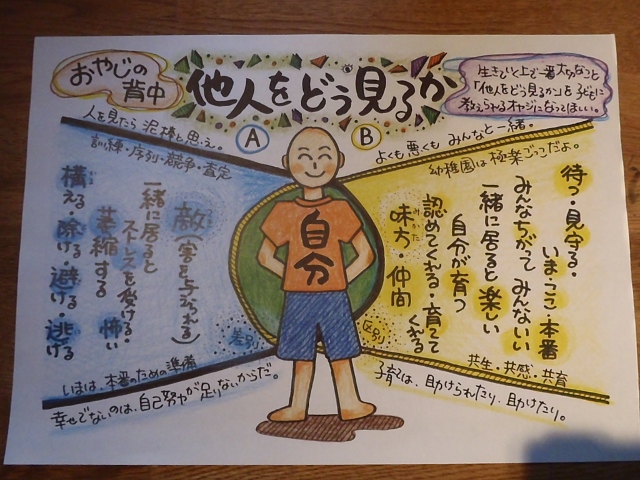 おやじの
背中
他人をどう見るか
生きていく上で一番大切なこと
「他人をどう見るか」を子どもに
教えられるオヤジになってほしい。
人を見たら泥棒と思え。
A
訓練・序列・競争・査定
敵(害を与えられる)
一緒に居ると
ストレスを受ける・怖い
萎縮する
構える・除ける・避ける・逃げる
差別
いまは、本番のための準備
幸せでないのは、自己努力が足りないからだ。
自分
B
よくも悪くもみんなと一緒。
幼稚園は極楽ごっこだよ。
待つ・見守る・
いま・ここ・本番
みんなちがってみんないい
一緒に居ると楽しい
自分が育つ
認めてくれる・育ててくれる
味方・仲間
みかた
区別
共生・共感・共育
子育ては、助けられたり、助けたり。